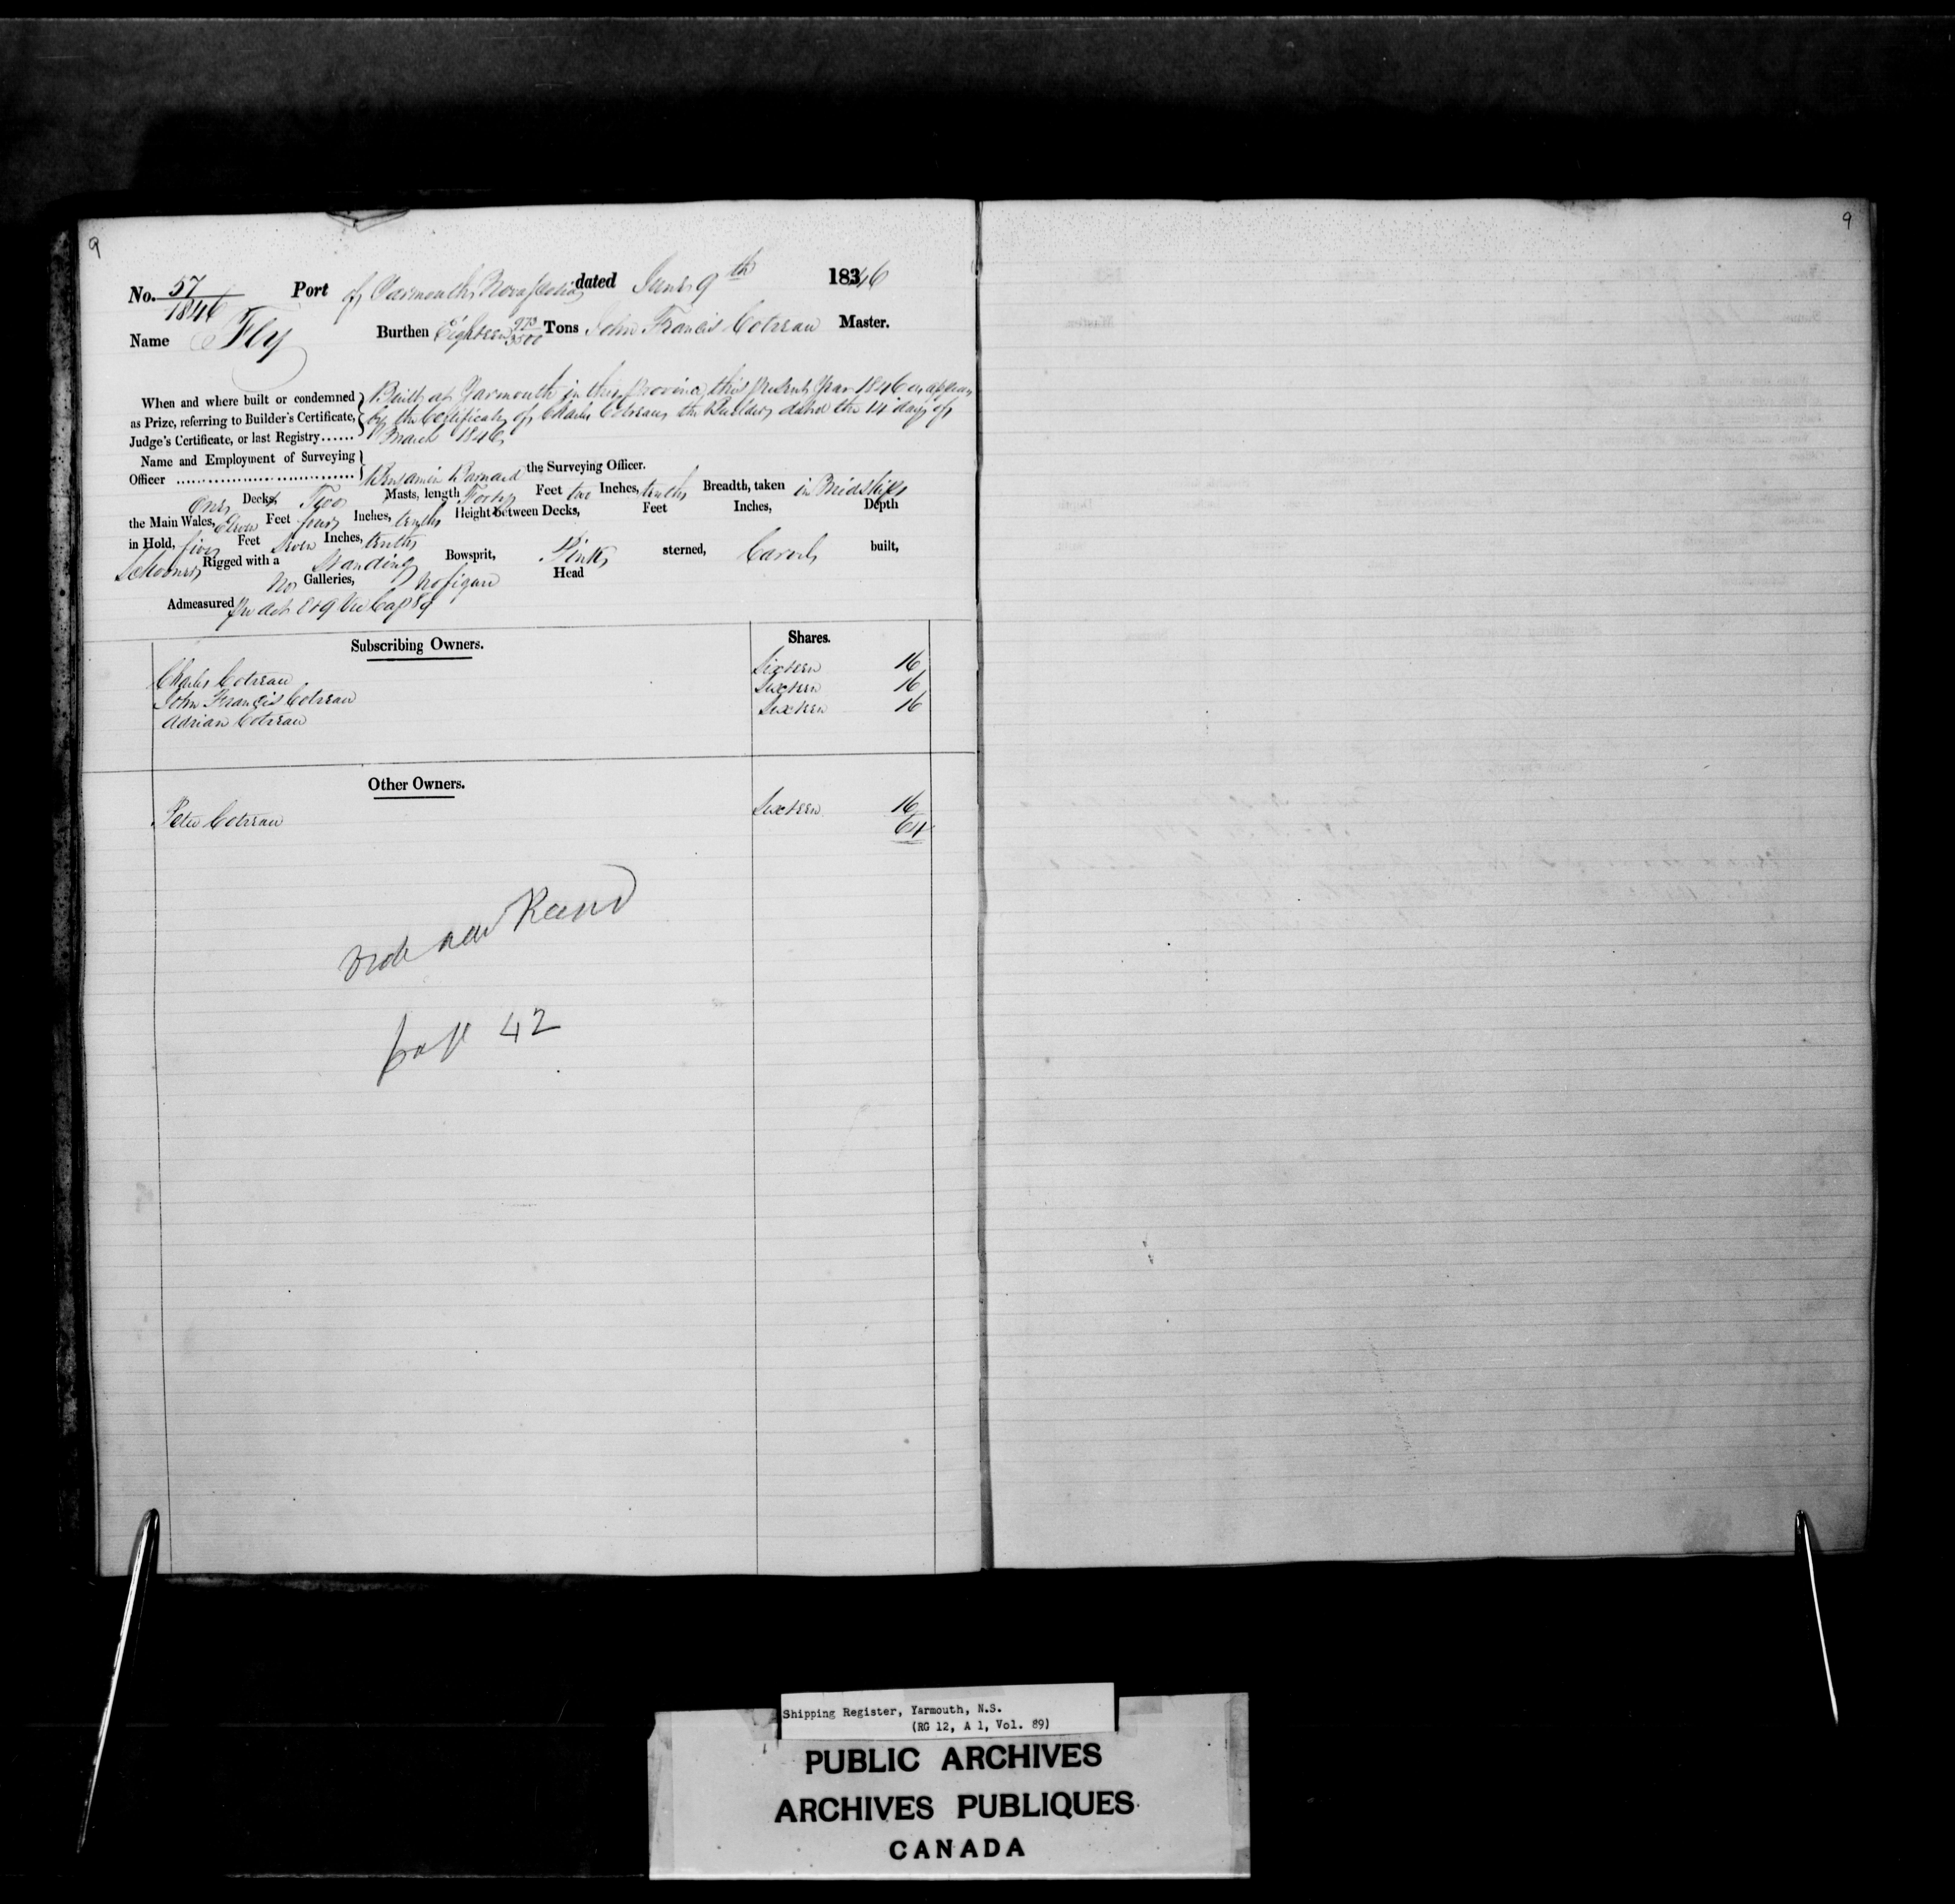 9
9
No. 57/1846 Port of Yarmouth, Nova Scotia dated June 9th 1846
Name Fly Burthen Eighteen 973/3500 Tons John Francis Cotreau Master.
When and where built or condemned as Prize, referring to Builder's Certificate, Judge's Certificate, or last Registry......
Built at Yarmouth in this Province this present Year 1846 as appears
by the Certificate of Charles Cotreau the Builder dated the 14 day of
March 1846
Name and Employment of Surveying
Officer .................................... Benjamin Barnard the Surveying Officer.
One Decks, Two Masts, length Forty Feet two Inches, tenths Breadth, taken in Midships
the Main Wales, Eleven Feet four Inches, tenths Height between Decks, Feet Inches, Depth
in Hold, five Feet seven Inches, tenths
Schooner Rigged with a Standing Bowsprit, Pink sterned, Carvel built,
No Galleries, no figure Head
Admeasured Per Act 8 & 9 Vic Cap 89
Subscribing Owners. Shares.
Charles Cotreau Sixteen 16
John Francis Cotreau Sixteen 16
Adrian Cotreau Sixteen 16
Other Owners.
Peter Cotreau Sixteen 16
64
Vide new
page 42
Shipping Register, Yarmouth, N.S.
(RG 12, A 1, Vol. 89)
PUBLIC ARCHIVES
ARCHIVES PUBLIQUES
CANADA